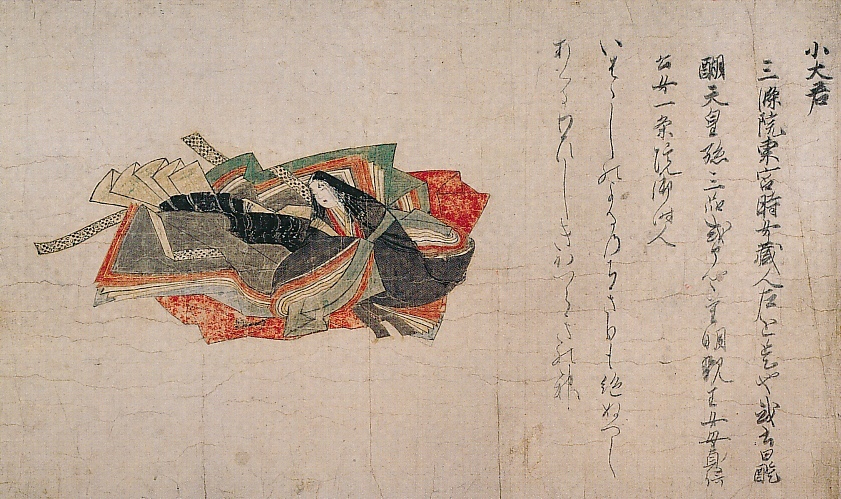 小大君
三條院東宮時女蔵人左近 或 曰醍
醐天皇孫三品式部卿重明親王女母貞信
公女一条院御時人
いはゝしのよるのちきりも絶ぬへし
あくるわひしきかつらきの神